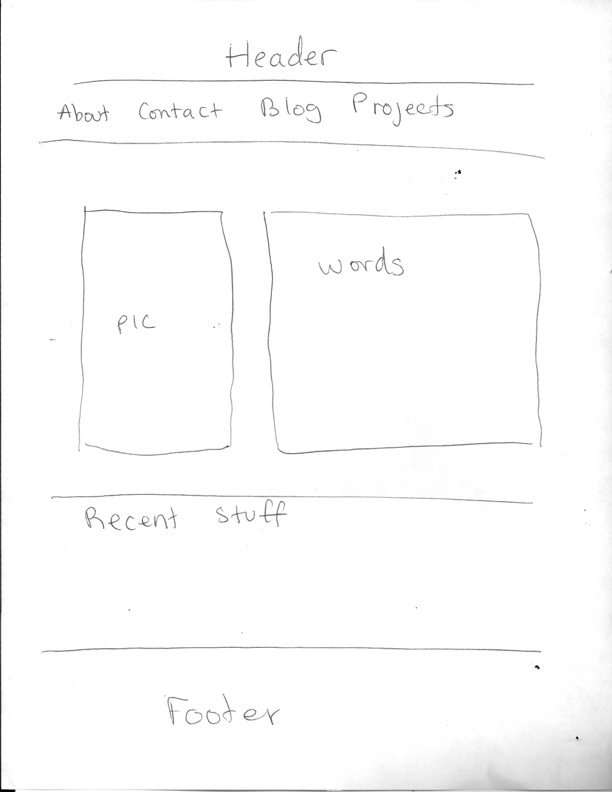 Header
About Contact Blog Projects
Words
PIC
Recent Stuff
Footer